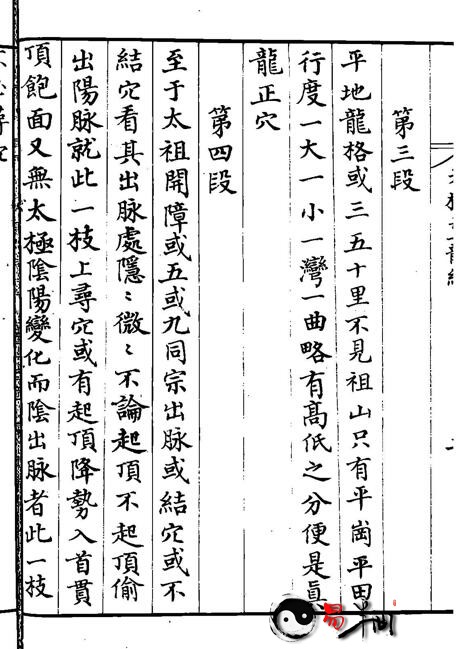 第三段
平地龍格或三五十里不見祖山只有平崗平田
行度一大一小一灣一曲略有高低之分便是眞
龍正穴
第四段
至于太祖開障或五或九同宗出脉或結穴或不
結穴看其出脉處隱〻微〻不論起頂不起頂偷
出陽脉就此一枝上尋穴或有起頂降勢入首貫
頂飽面又無太極陰陽變化而陰出脉者此一枝
易